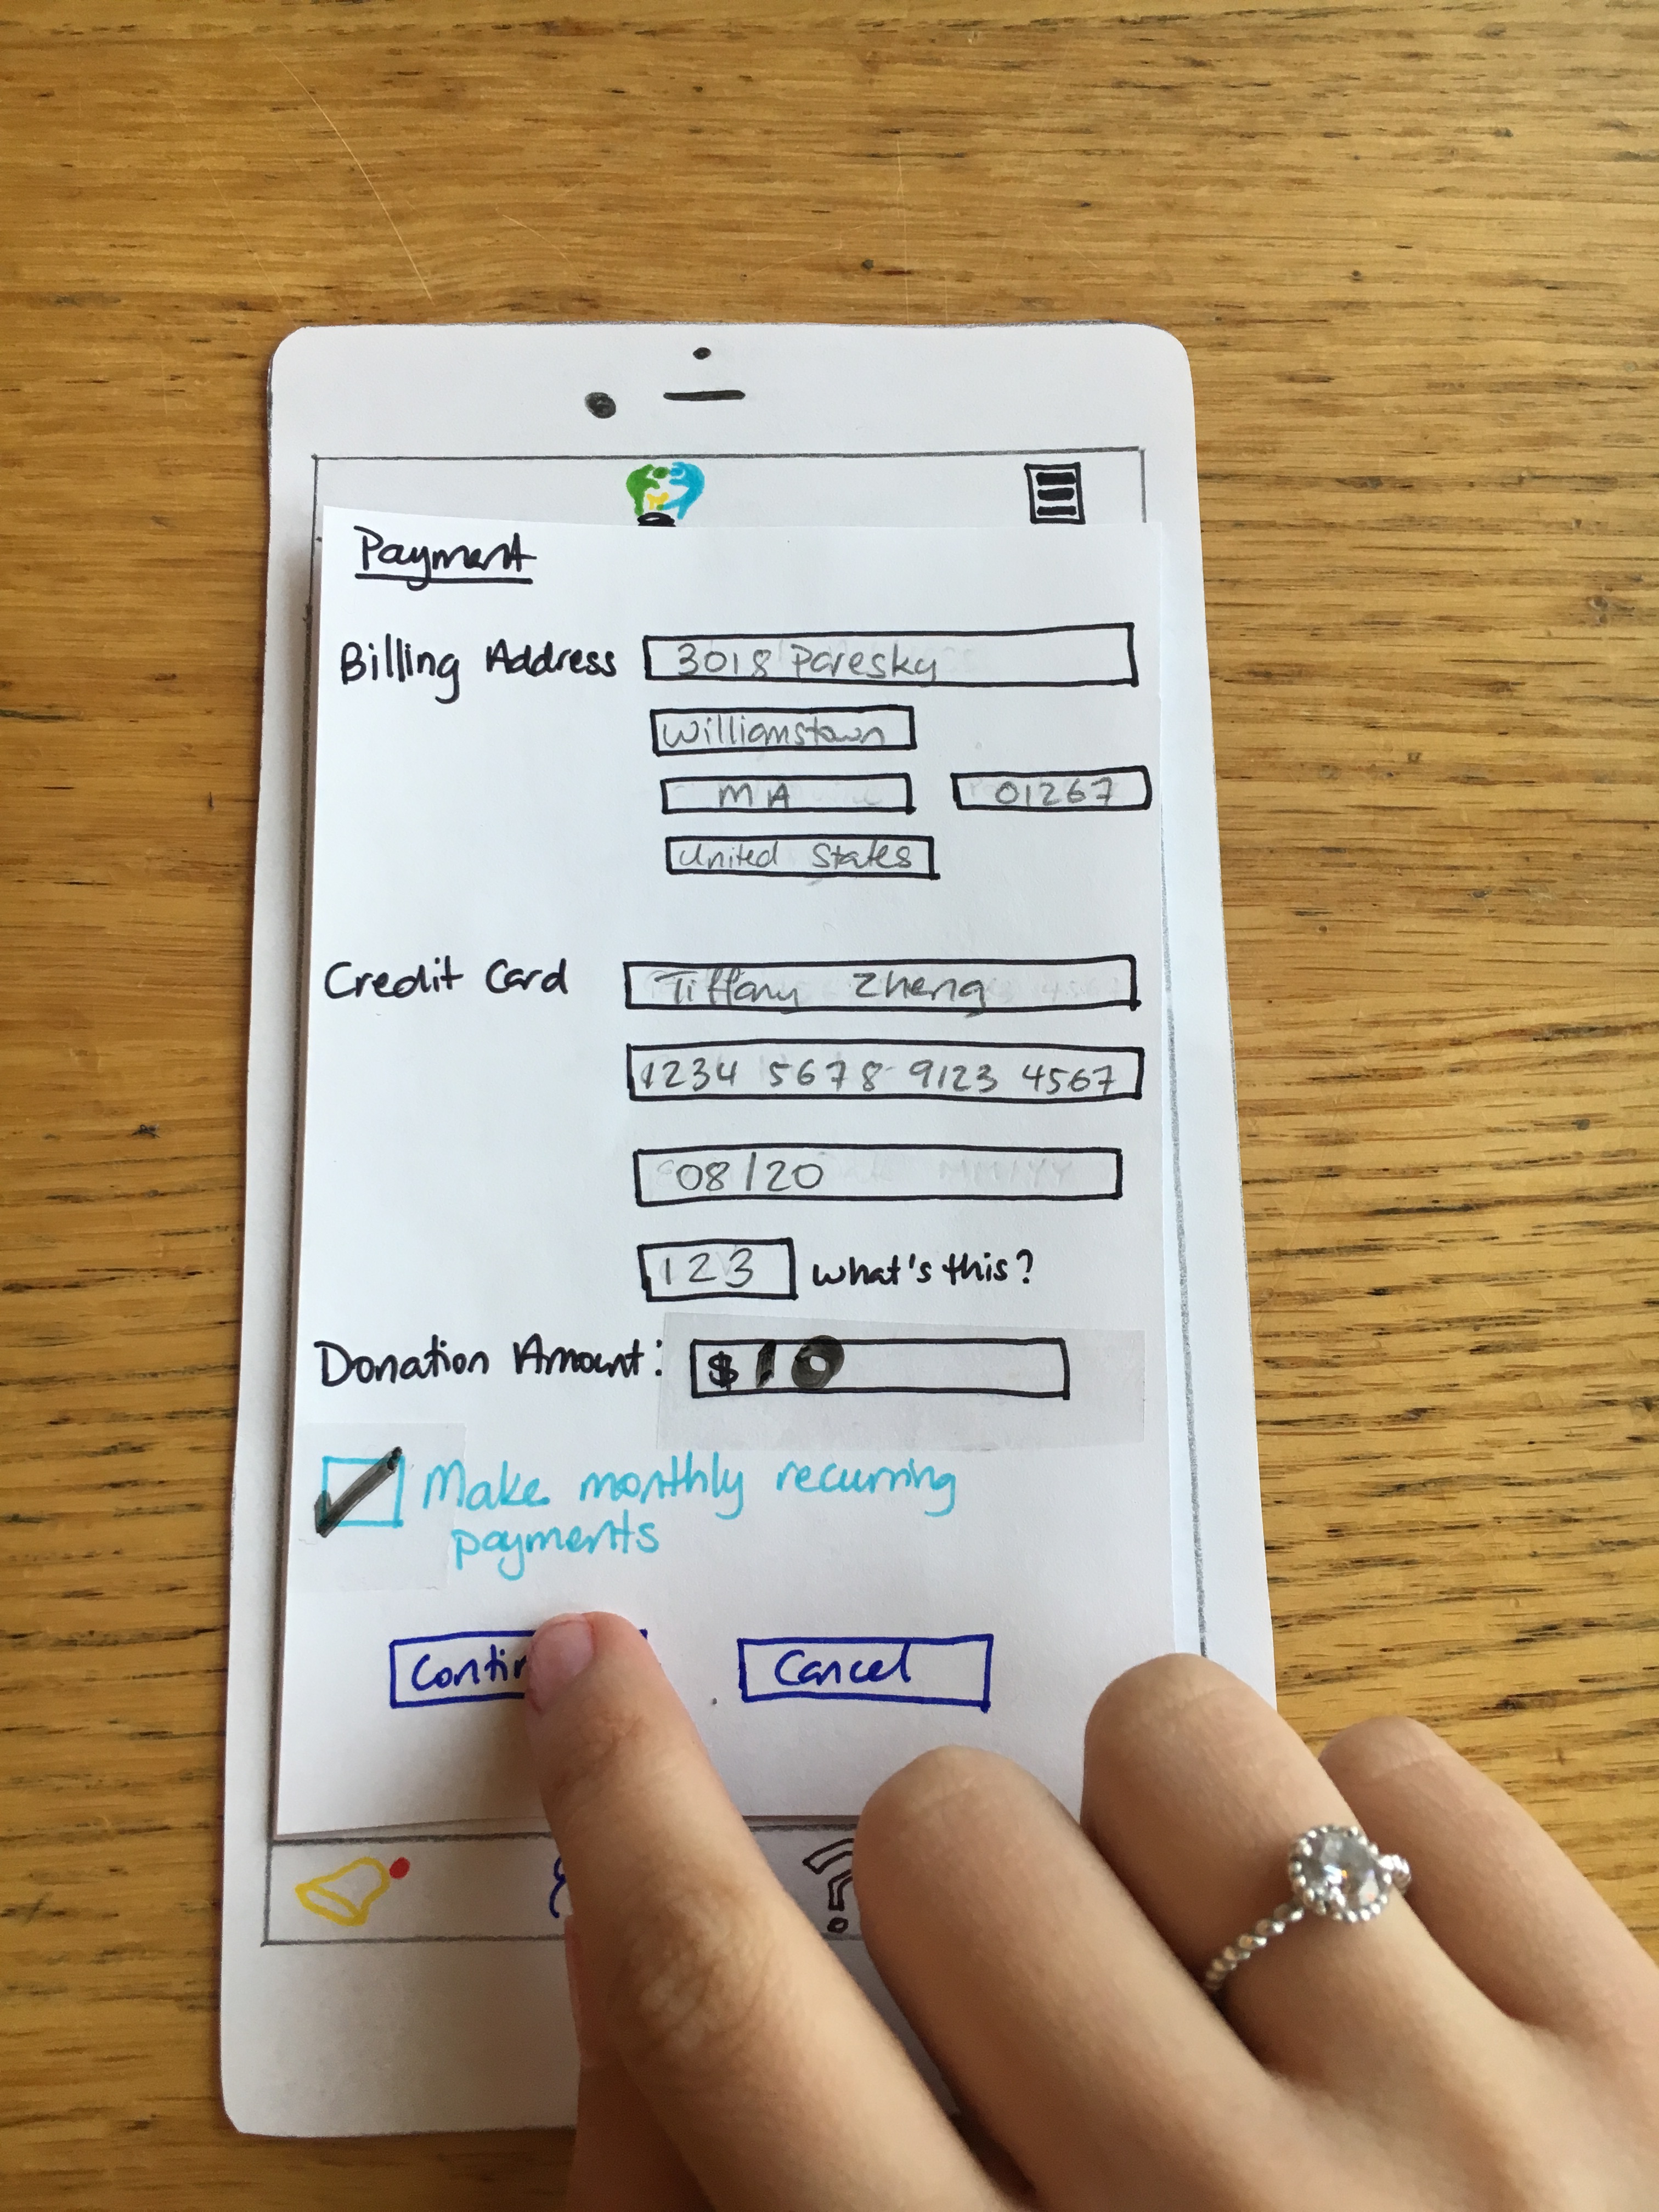 Payment
Billing Address 3018 Paresky
Williamstown
MA 01267
United States
Credit Card Tiffany Zheng
1234 5678 9123 4567
08/20
123 what's this?
Donation Amount: $ 10
Make monthly recurring
payments
Contin Cancel
?